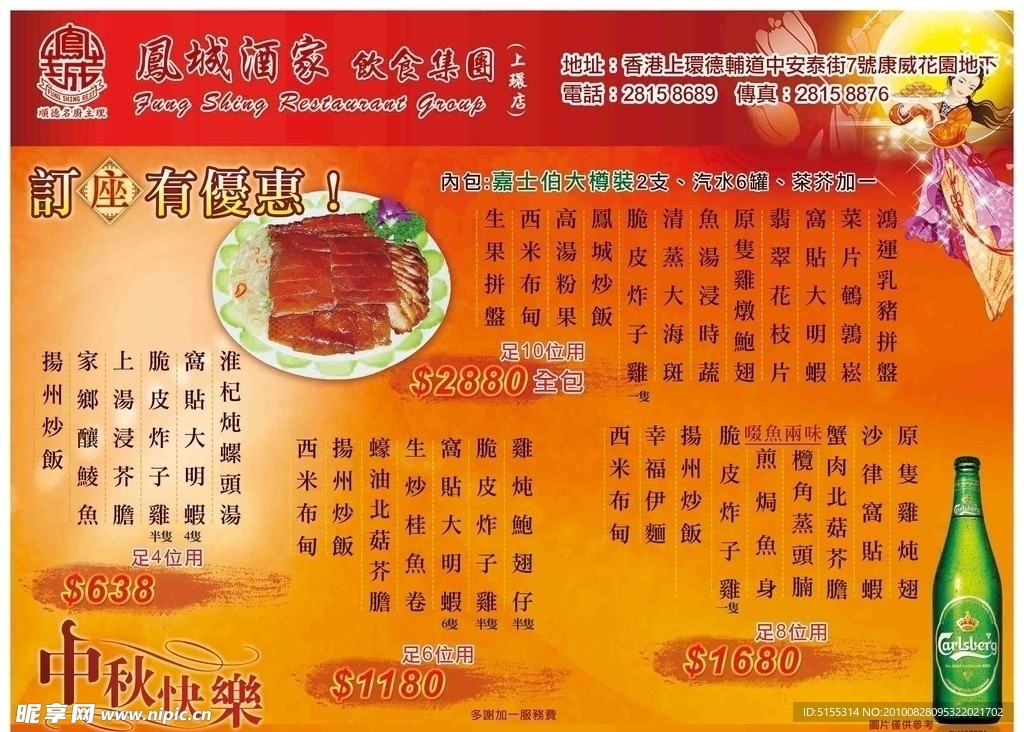 鳳城
FUNG SHING REST
順德名廚主理
鳳城酒家 飲食集團（上環店）
Fung Shing Restaurant Group
地址：香港上環德輔道中安泰街7號康威花園地下
電話：2815 8689　傳真：2815 8876
訂座有優惠！
內包:嘉士伯大樽裝2支、汽水6罐、茶芥加一
鴻運乳豬拼盤
菜片鵪鶉崧
窩貼大明蝦
翡翠花枝片
原隻雞燉鮑翅
魚湯浸時蔬
清蒸大海斑
脆皮炸子雞一隻
鳳城炒飯
高湯粉果
西米布甸
生果拼盤
足10位用
$2880 全包
淮杞炖螺頭湯
窩貼大明蝦4隻
脆皮炸子雞半隻
上湯浸芥膽
家鄉釀鯪魚
揚州炒飯
足4位用
$638
雞炖鮑翅仔半隻
脆皮炸子雞半隻
窩貼大明蝦6隻
生炒桂魚卷
蠔油北菇芥膽
揚州炒飯
西米布甸
足6位用
$1180
原隻雞炖翅
沙律窩貼蝦
蟹肉北菇芥膽
啜魚兩味
欖角蒸頭腩
煎焗魚身
脆皮炸子雞一隻
揚州炒飯
幸福伊麵
西米布甸
足8位用
$1680
Carlsberg
Carlsberg
中秋快樂
多謝加一服務費
圖片僅供參考
昵享网 www.nipic.cn
ID:5155314 NO:20100828095322021702